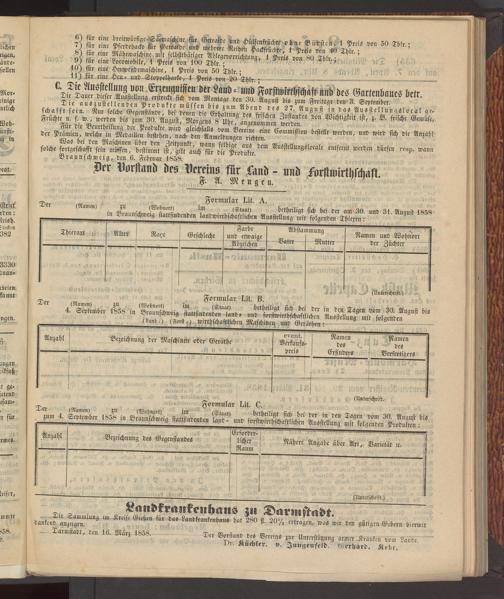 6) für eine breitwürfige Säemaschine für Getreide und Hülsenfrüchte ohne Bürsten, 1 Preis von 50 Thlr.;
7) für eine Pferdehacke für Getreide und mehrere Reihen Hackfrüchte, 1 Preis von 40 Thlr.;
8) für eine Mähemaschine mit selbstthätiger Ablegevorrichtung, 1 Preis von 80 Thlr.;
9) für eine Locomobile, 1 Preis von 100 Thlr.;
10) für eine Heuwendemaschine, 1 Preis von 50 Thlr.;
11) für eine Heu- und Stoppelharke, 1 Preis von 20 Thlr.;
C. Die Ausstellung von Erzeugnissen der Land- und Forstwirthschaft und des Gartenbaues betr.
Die Dauer dieser Ausstellung erstreckt sich vom Montage den 30. August bis zum Freitage den 3. September.
Die auszustellenden Producte müssen bis zum Abend des 27. August in das Ausstellungslocal geschafft sein. Nur solche Gegenstände, bei denen die Erhaltung des frischen Zustandes von Wichtigkeit ist, z. B. frische Gemüse,
Früchte u. s. w., werden bis zum 30. August, Morgens 8 Uhr, angenommen werden.
Für die Beurtheilung der Producte wird gleichfalls vom Vereine eine Commission bestellt werden, und wird sich die Anzahl
der Prämien, welche in Medaillen bestehen, nach den Anmeldungen richten.
Was bei den Maschinen über den Zeitpunkt, wann selbige aus dem Ausstellungslocale entfernt werden dürfen resp. wann
solche fortgeschafft sein müssen, bestimmt ist, gilt auch für die Producte.
Braunschweig, den 6. Februar 1858.
Der Vorstand des Vereins für Land- und Forstwirthschaft.
F. A. Mengen.
Formular Lit. A.
Der (Namen) zu (Wohnort) im (Staat) betheiligt sich bei der am 30. und 31. August 1858
in Braunschweig stattfindenden landwirthschaftlichen Ausstellung mit folgenden Thieren:
Thierart Alter Raçe Geschlecht Farbe und etwaige Abzeichen Abstammung Vater Mutter Namen und Wohnort der Züchter
(Unterschrift.)
Formular Lit. B.
Der (Namen) zu (Wohnort) im (Staat) betheiligt sich bei der in den Tagen vom 30. August bis
4. September 1858 in Braunschweig stattfindenden land- und forstwirthschaftlichen Ausstellung mit folgenden
wirthschaftlichen Maschinen und Geräthen:
Anzahl Bezeichnung der Maschinen oder Geräthe event. Verkaufspreis Namen des Erfinders Namen des Verfertigers
(Unterschrift.)
Formular Lit. C.
Der (Namen) zu (Wohnort) im (Staat) betheiligt sich bei der in den Tagen vom 30. August bis
zum 4. September 1858 in Braunschweig stattfindenden land- und forstwirthschaftlichen Ausstellung mit folgenden Producten:
Anzahl Bezeichnung des Gegenstandes Erforderlicher Raum Nähere Angabe über Art, Varietät u.
(Unterschrift.)
Landkrankenhaus zu Darmstadt.
Die Sammlung im Kreise Gießen für das Landkrankenhaus hat 280 fl. ertragen, was wir den gütigen Gebern hiermit
dankend anzeigen.
Darmstadt, den 16. März 1858.
Der Vorstand des Vereins zur Unterstützung armer Kranken vom Lande.
Dr. Küchler. v. Jungenfeld. Gerhard. Kehr.